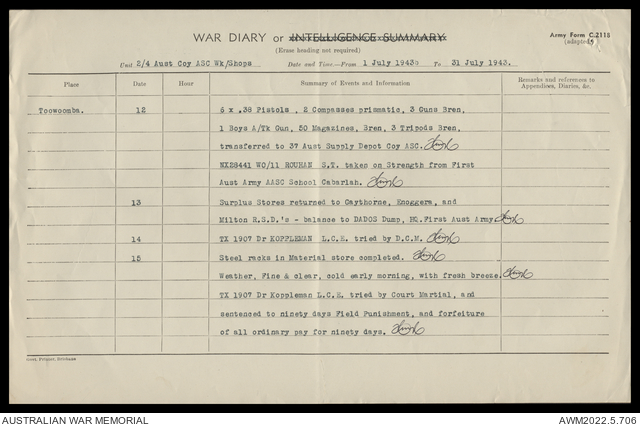 WAR DIARY or INTELLIGENCE SUMMARY
Army Form C.2118
(adapted)
(Erase heading not required)
Unit 2/4 Aust Coy ASC Wk/Shops Date and Time—From 1 July 1943. To 31 July 1943.
Place Date Hour Summary of Events and Information Remarks and references to Appendices, Diaries, &c.
Toowoomba. 12 6 x .38 Pistols , 2 Compasses prismatic, 3 Guns Bren,
1 Boys A/Tk Gun, 50 Magazines, Bren, 3 Tripods Bren,
transferred to 37 Aust Supply Depot Coy ASC.
NX28441 WO/11 ROUHAN S.T. taken on Strength from First
Aust Army AASC School Cabarlah.
13 Surplus Stores returned to Gaythorne, Enoggera, and
Milton R.S.D.'s - balance to DADOS Dump, HQ.First Aust Army.
14 TX 1907 Dr KOPPLEMAN L.C.E. tried by D.C.M.
15 Steel racks in Material store completed.
Weather, Fine & clear, cold early morning, with fresh breeze.
TX 1907 Dr Koppleman L.C.E. tried by Court Martial, and
sentenced to ninety days Field Punishment, and forfeiture
of all ordinary pay for ninety days.
Govt. Printer, Brisbane
AUSTRALIAN WAR MEMORIAL AWM2022.5.706